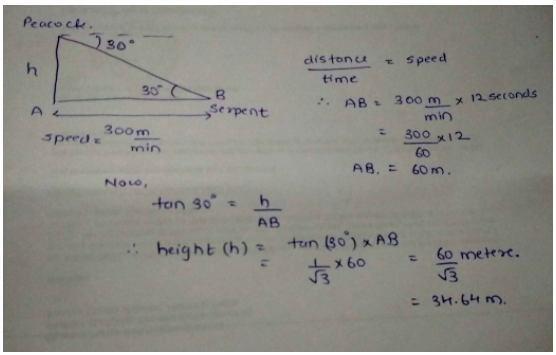 Peacock.
30°
h
30°
A
B
Serpent
speed = 300m/min
distance/time = speed
∴ AB = 300 m/min × 12 seconds
= 300/60 × 12
AB. = 60m.
Now,
tan 30° = h/AB
∴ height (h) = tan (30°) × AB
= 1/√3 × 60 = 60/√3 metere.
= 34.64 m.